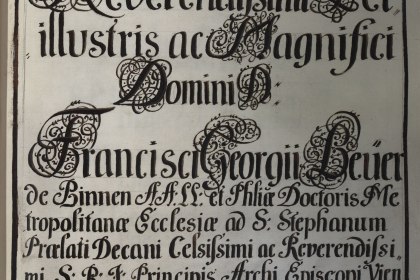 Reverendissimi Per
illustris ac Magnifici
Domini D:
Francisci Georgii Beüer
de Binnen A.A.LL. et Philiæ Doctoris Me
tropolitanæ Ecclesiæ ad S: Stephanum
Prælati Decani Celsissimi ac Reverendissi
mi S: R: I: Principis Archi Episcopi Vien